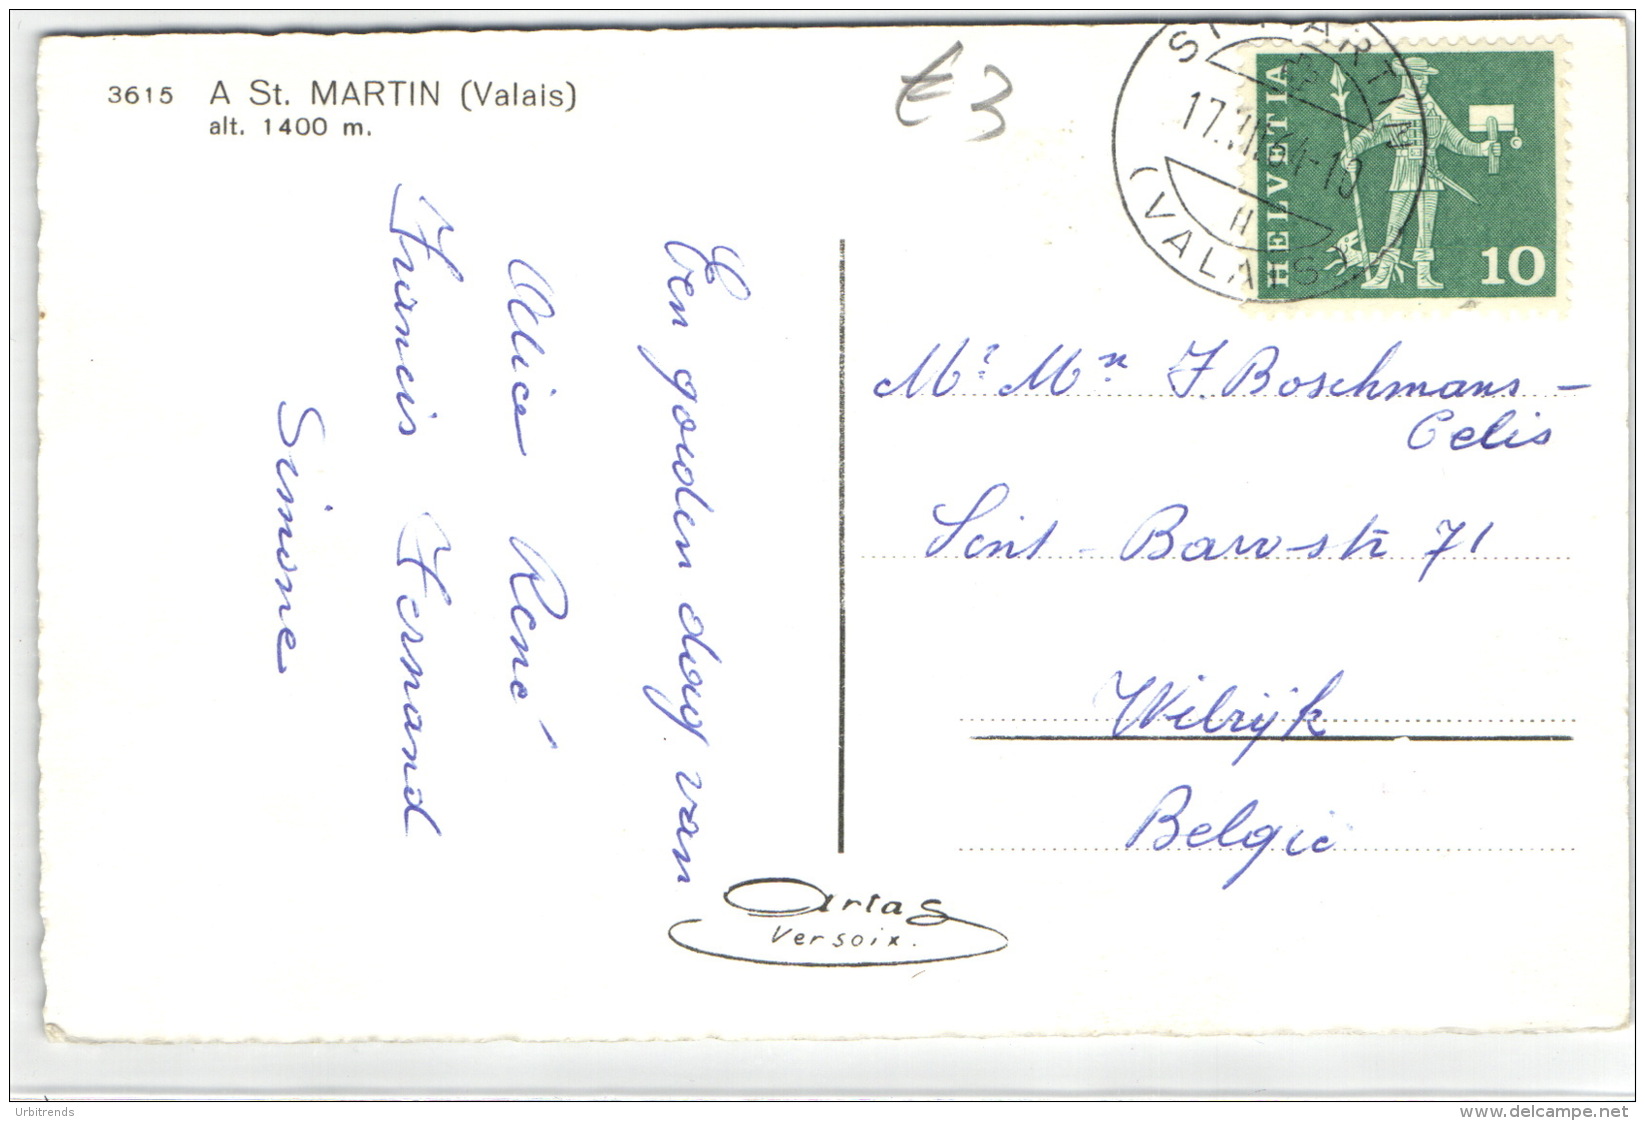 3615 A St. MARTIN (Valais)
alt. 1400 m.
€3
ST MARTIN
17. -10
(VALAIS)
HELVETIA
10
Een gouden dag van
Alice René
Francis Fernand
Simone
Mr Mn J. Boschmans-
Celis
Sint-Bavostr 71
Wilrijk
België
Artas
Versoix.
Urbitrends
www.delcampe.net